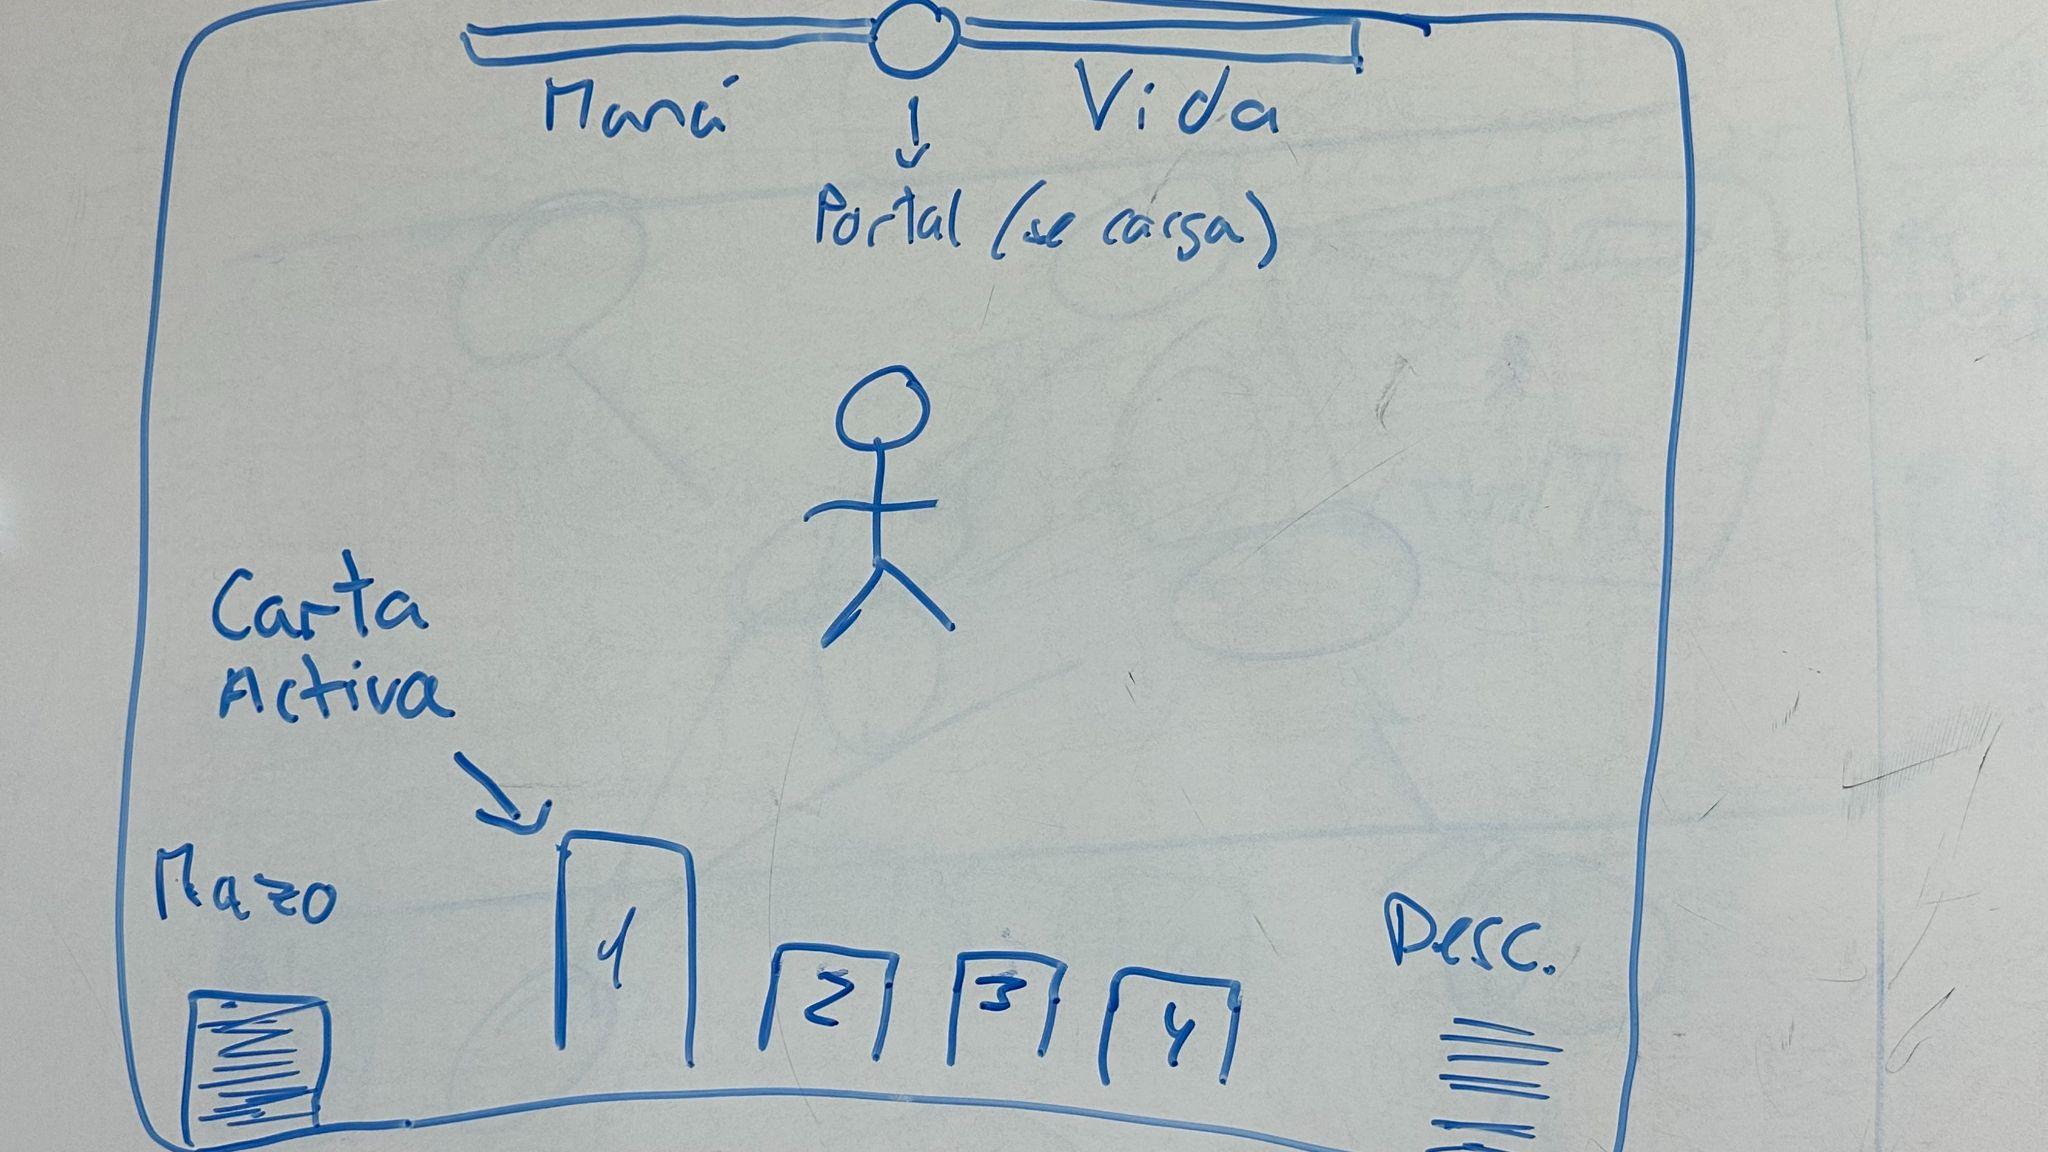 Maná
Vida
Portal (se carga)
Carta
Activa
Mazo
Desc.
1
2
3
4